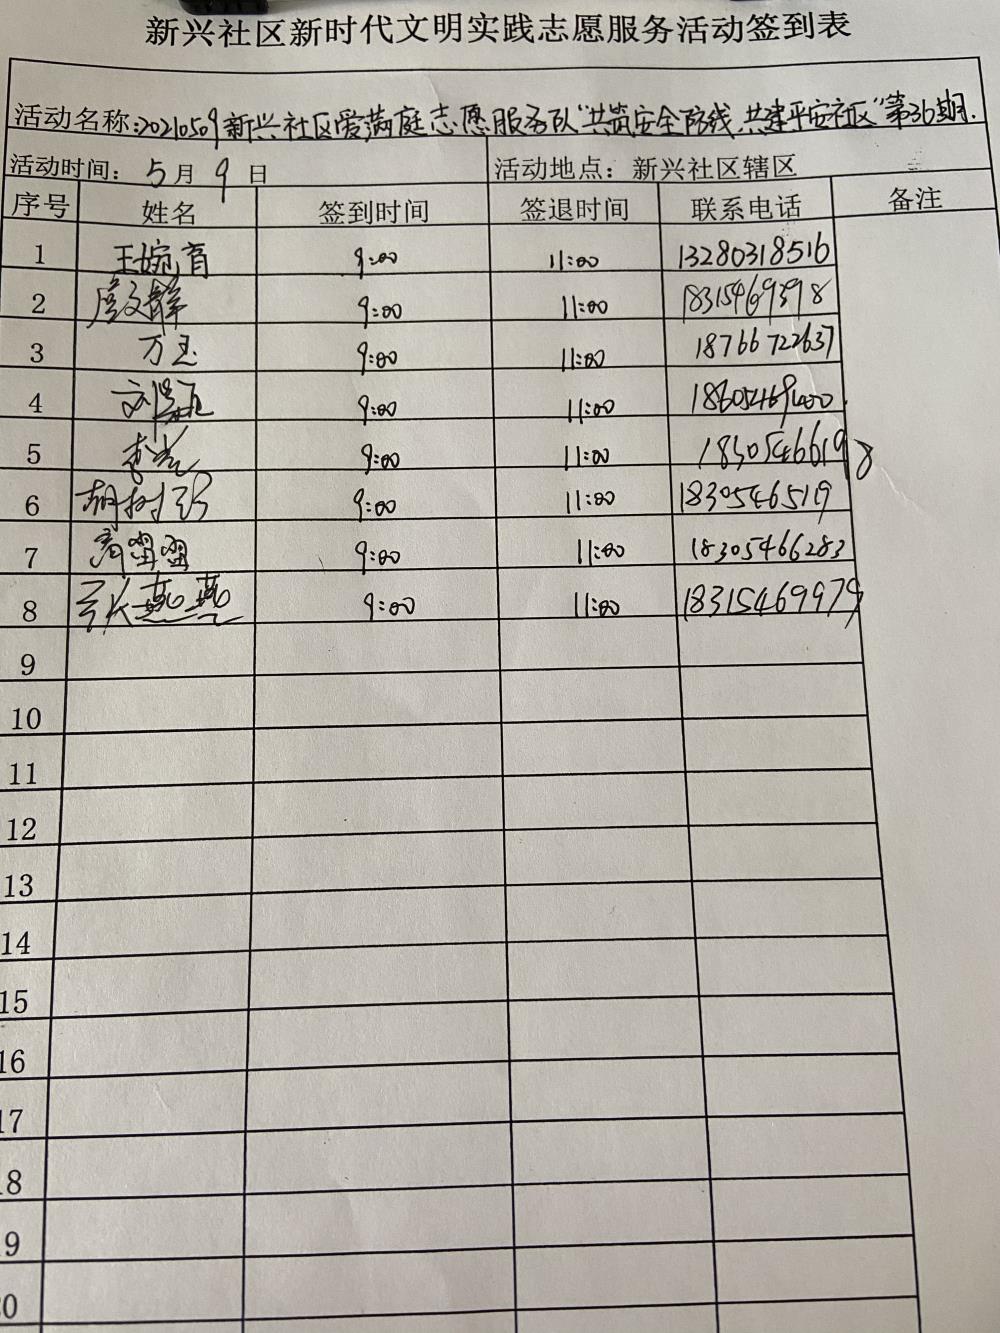 新兴社区新时代文明实践志愿服务活动签到表
活动名称:20210509新兴社区爱满庭志愿服务队"共筑安全防线 共建平安社区"第36期.
活动时间: 5月9日 活动地点: 新兴社区辖区
序号 姓名 签到时间 签退时间 联系电话 备注
1 王婉育 9:00 11:00 13280318516
2 9:00 11:00
3 万玉 9:00 11:00 18766722637
4 9:00 11:00
5 9:00 11:00 18305466198
6 胡 9:00 11:00 1830546519
7 9:00 11:00 18305466283
8 张燕燕 9:00 11:00 18315469979
9
10
11
12
13
14
15
16
17
18
19
20